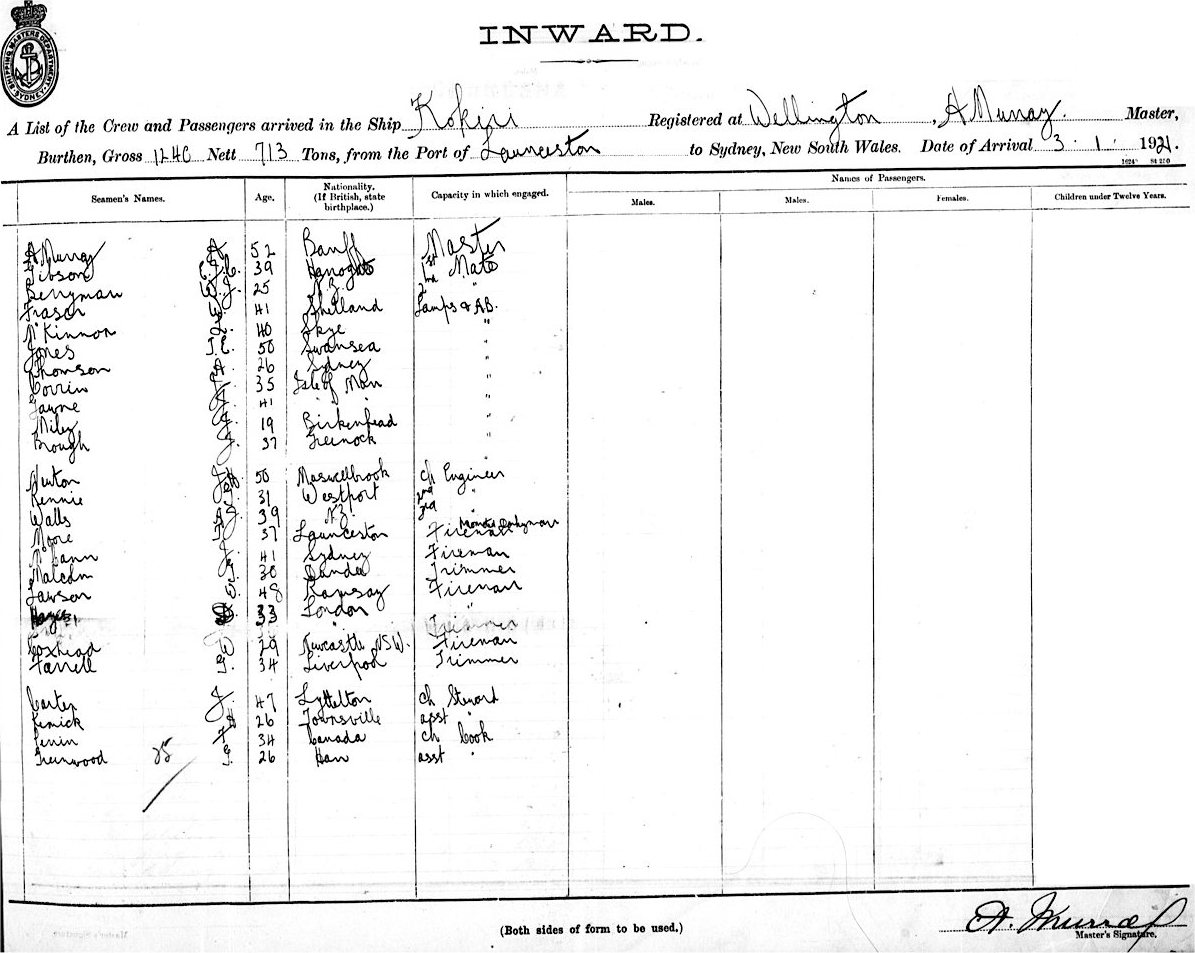 SHIPPING MASTERS DEPARTMENT SYDNEY
INWARD.
A List of the Crew and Passengers arrived in the Ship Kokiri Registered at Wellington, A Murray. Master,
Burthen, Gross 1240 Nett 713 Tons, from the Port of Launceston to Sydney, New South Wales. Date of Arrival 3. 1. 1921.
Seamen's Names. Age. Nationality. (If British, state birthplace.) Capacity in which engaged. Names of Passengers.
Males. Males. Females. Children under Twelve Years.
A Murray A 52 Banff Master
Gibson 39 Harrogate 1st Mate
Berryman 25 N.Z. 2nd "
Fraser 41 Shetland Lamps & AB.
McKinnon 40 Skye "
Jones J.E. 50 Swansea "
Thomson A. 26 Sydney "
Corrin 35 Isle of Man "
Gawne 41 " " "
Riley 19 Birkenhead "
Brough J. 37 Greenock "
50 Muswellbrook ch Engineer
Rennie 31 Westport 2nd "
Walls 39 N.Z. 3rd "
Moore 37 Launceston Fireman
McCann J. 41 Sydney Fireman
Malcolm 30 Dundee Trimmer
Lawson 48 Ramsay Fireman
33 London "
Trimmer
Coxhead 29 Newcastle NSW. Fireman
Farrell G. 34 Liverpool Trimmer
Carter J. 47 Lyttelton ch Steward
26 Townsville asst "
34 Canada ch Cook
Greenwood 26 asst "
25
(Both sides of form to be used.)
A. Murray
Master's Signature.